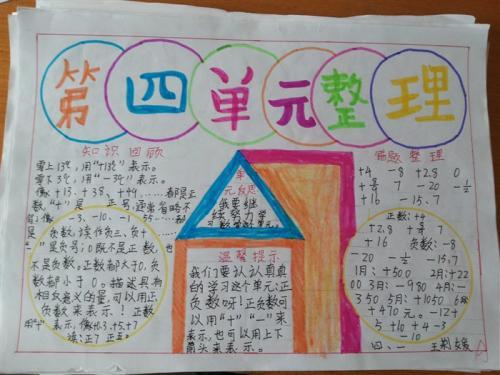 第四单元整理
知识回顾
零上13℃，用“+13℃”表示。
零下3℃，用“-3℃”表示。
像+13、+38、+49……都是正
数“+”是正号,通常省略不
写,像-3、-10、-155……都
是负数,读作负三、负十
“-”是负号,0既不是正数,也
不是负数。正数都大于0,负
数都小于0。描述具有
相反意义的量,可以用正
负数来表示！正数
用“+”表示,像+3.+5.+7
读:正7正五
单
元反思
我要继
续努力学
温馨提示
我们要认认真真
的学习这个单元:正
负数呀！正负数可
以用“+”“-”来
表示,也可以用上下
箭头来表示。
错题整理
+4 -8 +2.8 0
7 -20
+16 -15.7
正数:+4
+2.8 7
+16 负数:-8
-20 -15.7
1月:+500 2月:+22
00 3月:-980 4月:-
350 5月:+1050 6月
+470元。-12+
5+10+4-3
-10
四、一